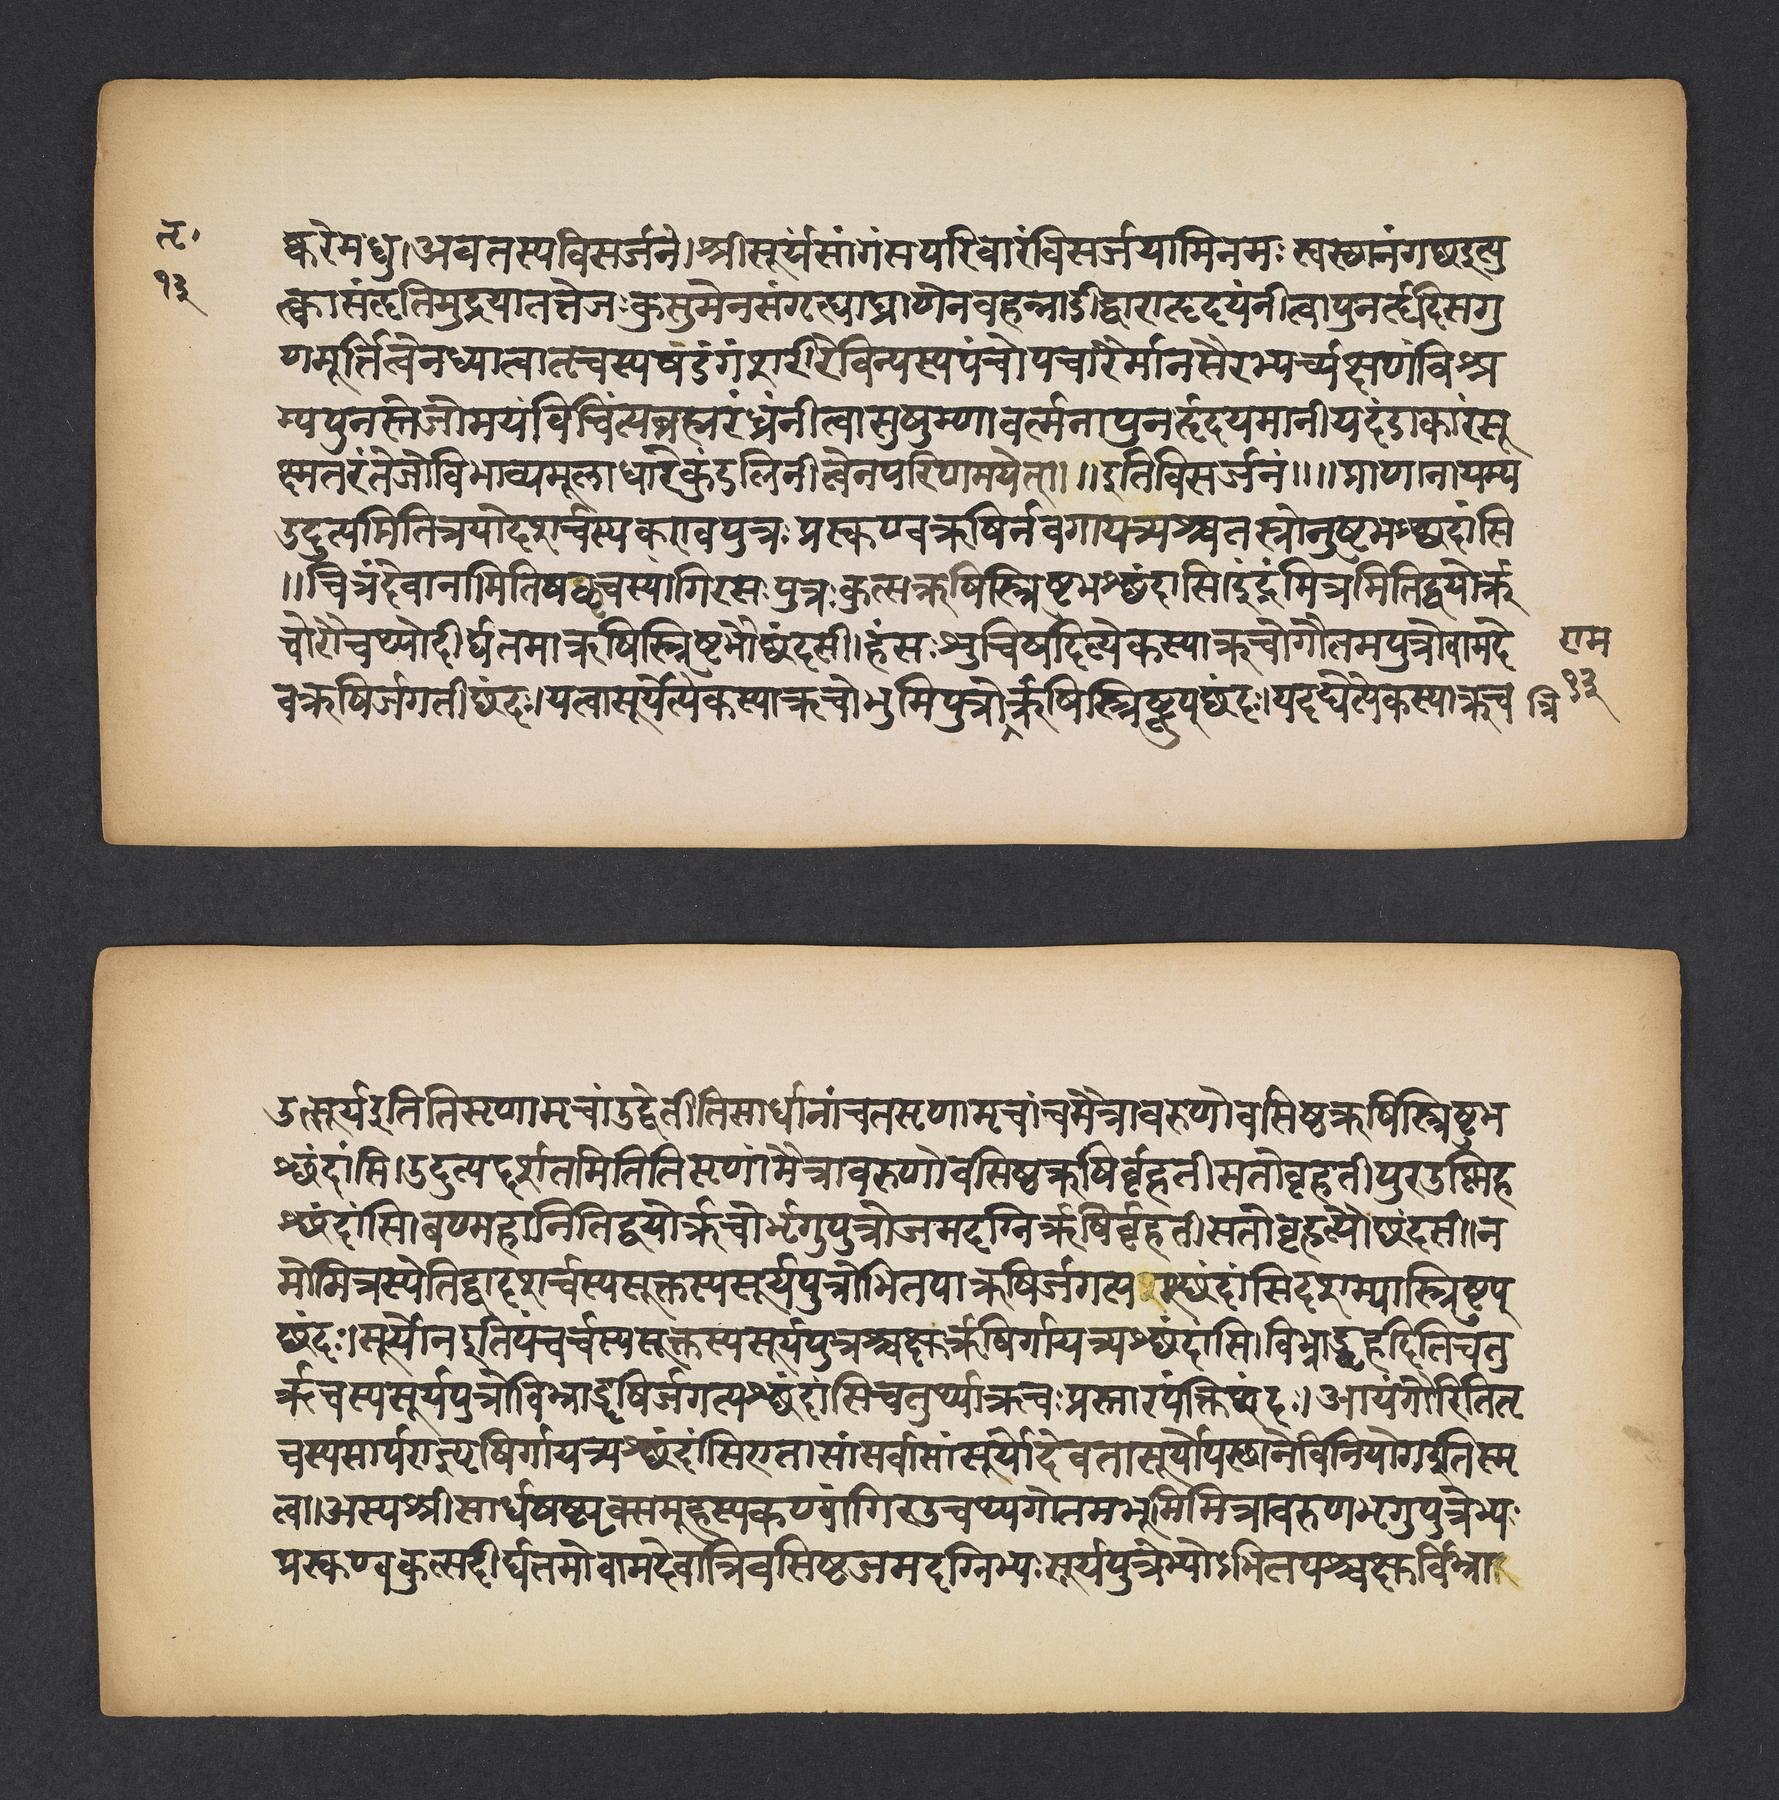 तृ॰
१३
ष्करेमधु।अवतस्यविसर्जने।श्रीसूर्यंसांगंसपरिवारंविसर्जयामिनमः स्वस्थानंगछइत्यु
त्क्वासंहृतिमुद्रयातत्तेजःकुसुमेनसंगृह्याघ्राणेनवहन्नाडीद्वाराहृदयंनीत्वापुनर्हृदिसगु
णमूर्तित्वेनध्यात्वातच्चस्यषडंगंशरीरेविन्यस्यपंचोपचारैर्मानसैरभ्यर्च्यक्षणंविश्र
म्यपुनस्तेजोमयंविचिंत्यब्रह्मरंध्रंनीत्वासुषुम्णावर्त्मनापुनर्हृदयमानीयदंडाकारंसू
क्ष्मतरंतेजोविभाव्यमूलाधारेकुंडलिनीत्वेनपरिणामयेत्॥ ॥इतिविसर्जनं॥ ॥प्राणानायम्य
उदुत्यमितित्रयोदशर्चस्यकण्वपुत्रः प्रस्कण्वऋषिर्नवगायत्र्यश्चतस्रोनुष्टुभश्छंदांसि
॥चित्रंदेवानामितिषळृचस्यांगिरसः पुत्रः कुत्सऋषिस्त्रिष्टुभश्छंदांसि।इंद्रंमित्रमितिद्वयोर्ऋ
चोरौचथ्योदीर्घतमाऋषिस्त्रिष्टुभौछंदसी।हंसःशुचिषदित्येकस्याऋचोगौतमपुत्रोवामदे
राम
वऋषिर्जगतीछंदः।यत्वासूर्येत्येकस्याऋचोभुमिपुत्रोर्ऋषिस्त्रिष्टुप्छंदः।यदद्येत्येकस्याऋच
त्रि
१३
उत्सूर्यइतितिसृणामृचांउद्वेतीतिसार्धानांचतसृणामृचांचमैत्रावरुणोवसिष्ठऋषिस्त्रिष्टुभ
श्छंदांसि।उदुत्यद्दर्शतमितितिसृणांमैत्रावरुणोवसिष्ठऋषिर्बृहतीसतोबृहतीपुरउष्णिह
श्छंदांसि।बण्महानितिद्वयोर्ऋचोर्भृगुपुत्रोजमदग्निर्ऋषिर्बृहतीसतोबृहत्यौछंदसी॥न
मोमित्रस्येतिद्वादशर्चस्यसूक्तस्यसूर्यपुत्रोभितपाऋषिर्जगत्यश्छंदांसिदशम्यास्त्रिष्टुप्
छंदः।सूर्योनइतिपंचर्चस्यसूक्तस्यसूर्यपुत्रश्चक्षुर्ऋषिर्गायत्र्यश्छंदांसि।विभ्राड्बृहदितिचतु
र्ऋचस्यसूर्यपुत्रोविभ्राडृषिर्जगत्यश्छंदांसिचतुर्थ्याऋचः प्रस्तारपंक्तिश्छंदः।आयंगौरितितृ
चस्यसार्पराज्ञ्यृषिर्गायत्र्यश्छंदांसिएतासांसर्वासांसूर्योदेवतासूर्योपस्थानेविनियोगइतिस्मृ
त्वा।अस्यश्रीसार्धषष्ट्यृक्समूहस्यकण्वांगिरउचथ्यगोतमभूमिमित्रावरुणभृगुपुत्रेभ्यः
प्रस्कण्वकुत्सदीर्घतमोवामदेवात्रिवसिष्ठजमदग्निभ्यः सूर्यपुत्रेभ्योऽभितपश्चक्षुर्विभ्रा